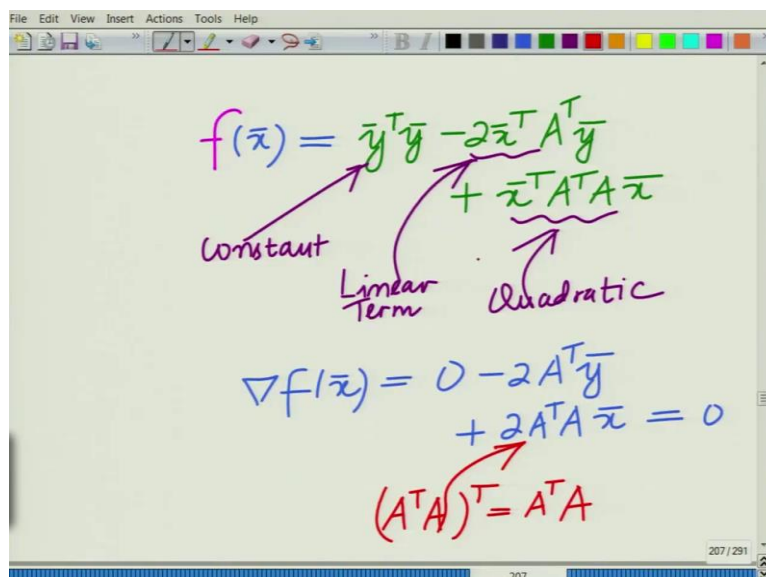 File Edit View Insert Actions Tools Help
B I
f(x̄) = ȳᵀȳ − 2x̄ᵀAᵀȳ
+ x̄ᵀAᵀA x̄
Constant
Linear
Term
Quadratic
∇f(x̄) = 0 − 2Aᵀȳ
+ 2AᵀA x̄ = 0
(AᵀA)ᵀ = AᵀA
207 / 291
207